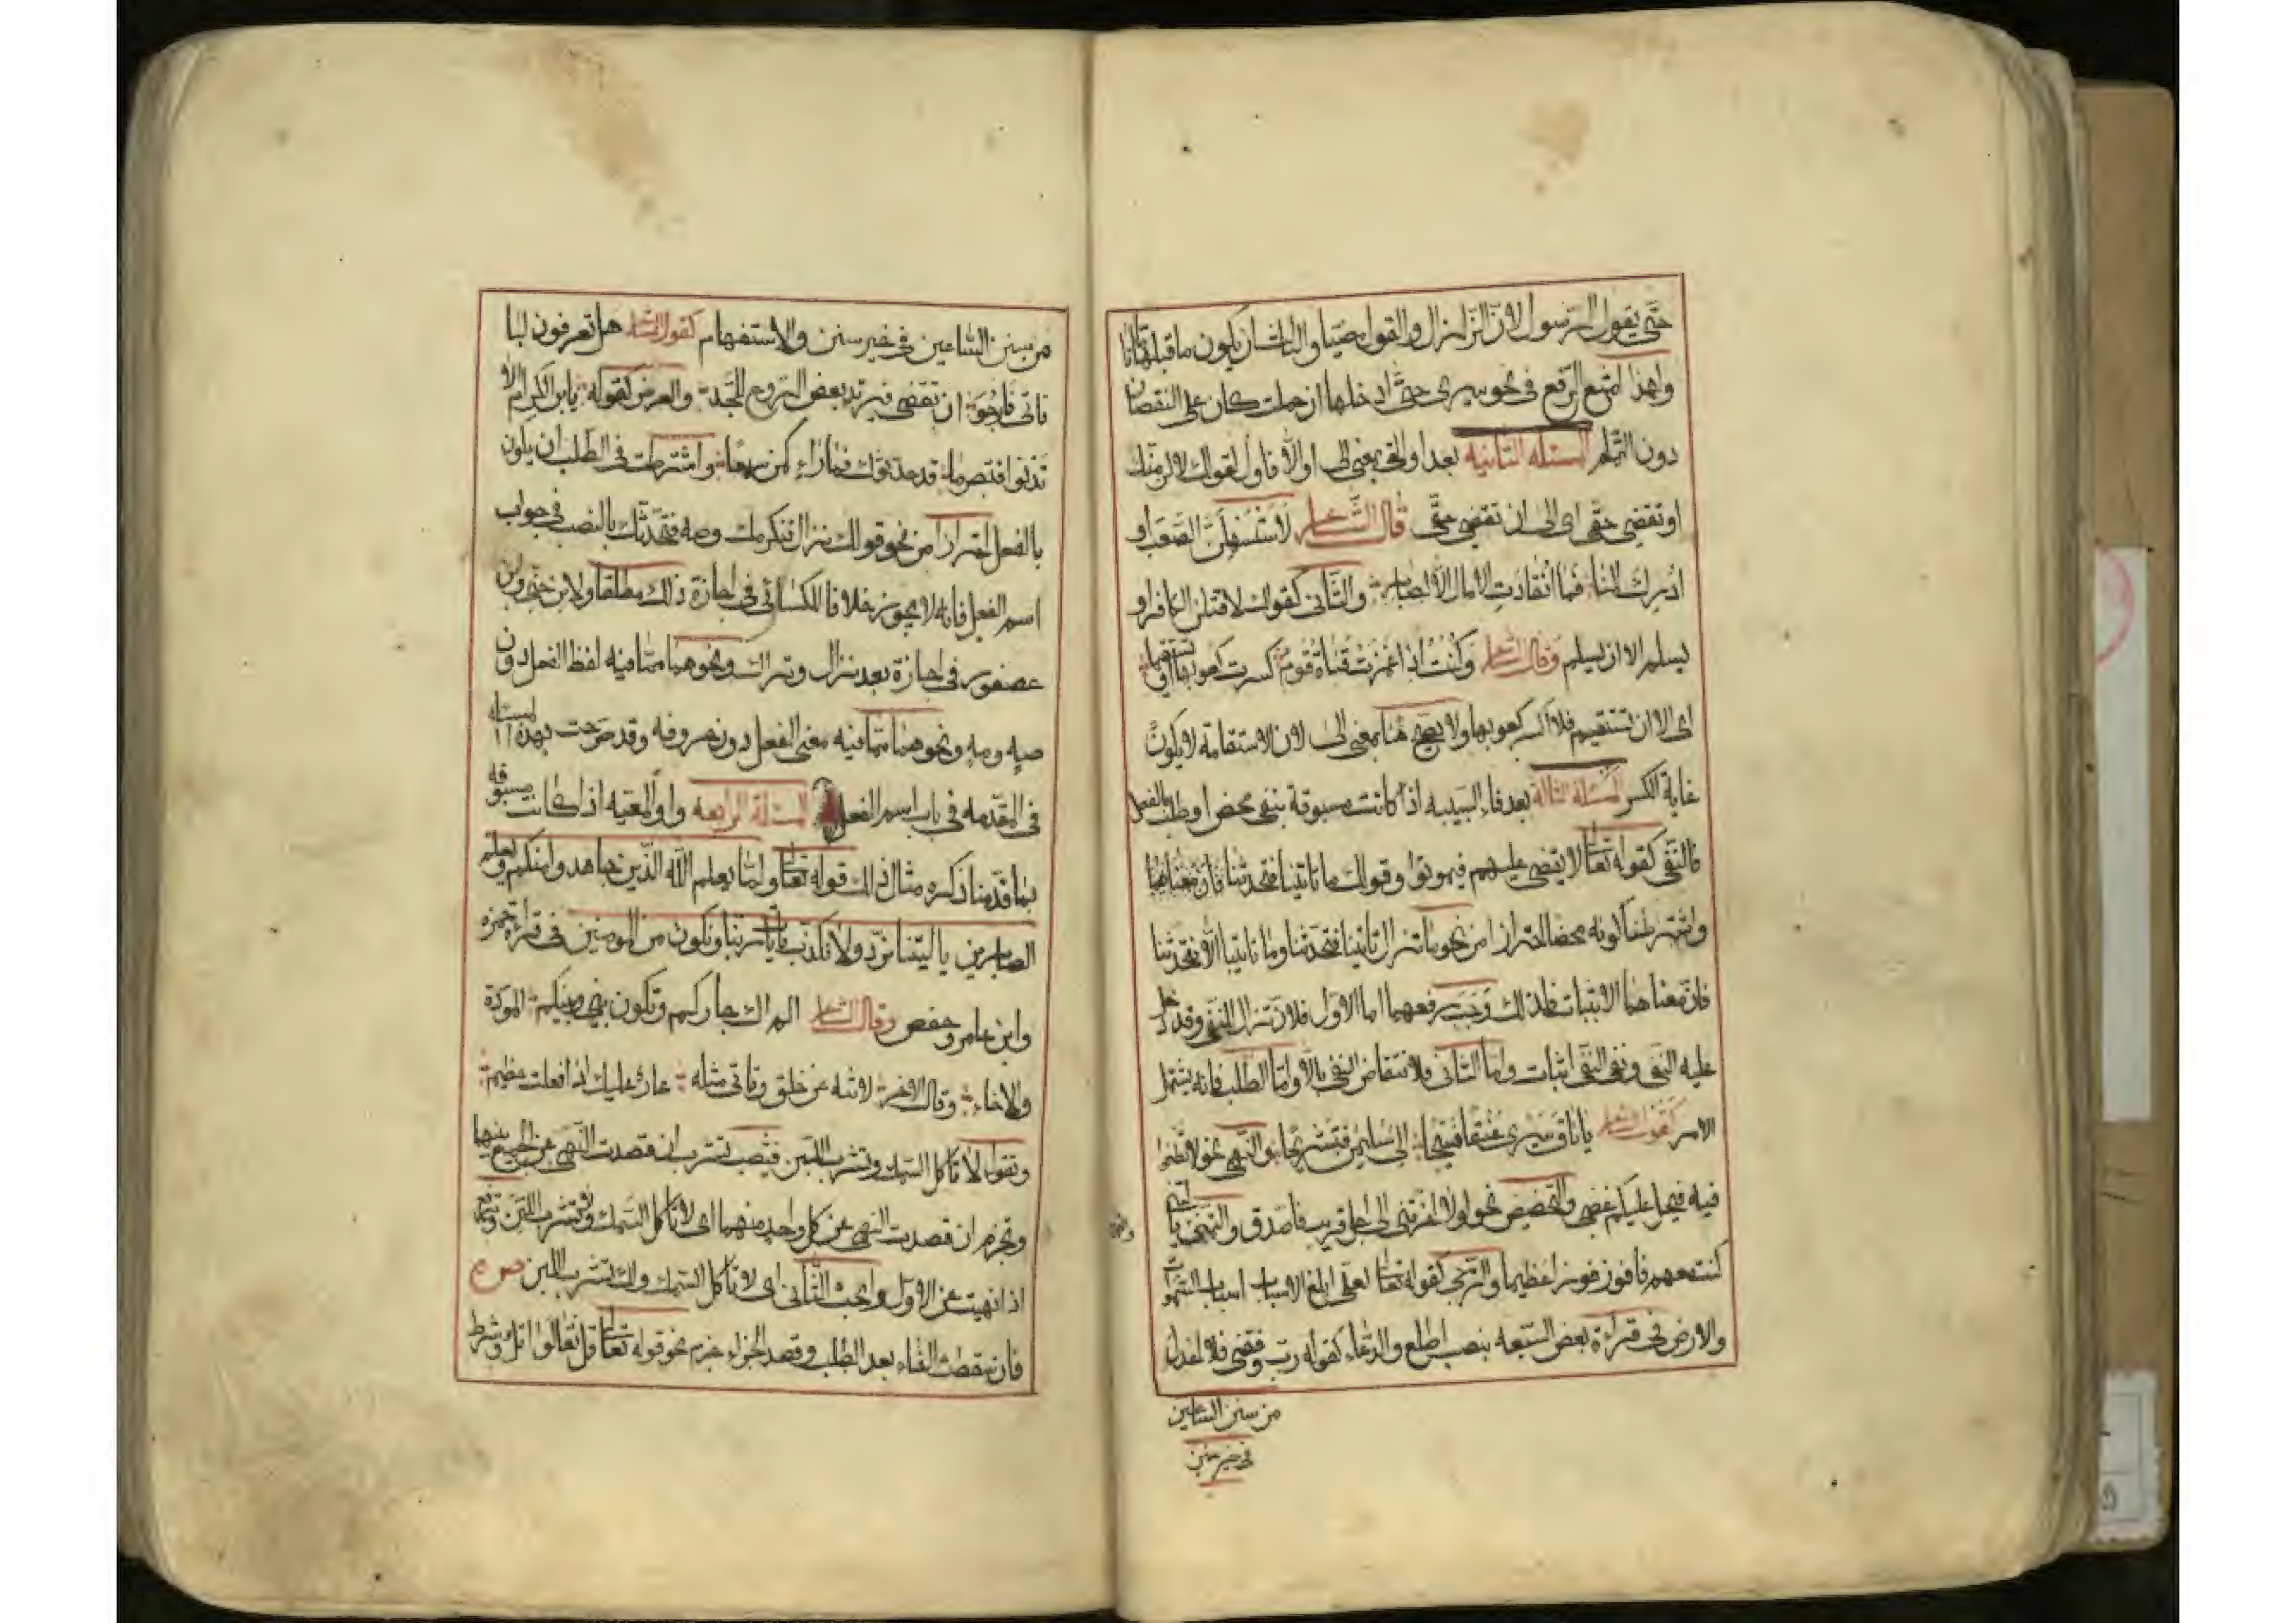 حتى يقول الرسول لان الزلزال والقول مضيا والثالث ان يكون ما قبلها تاما
ولهذا امتنع الرفع في نحو سيري حتى ادخلها ان حملت كان على النقصان
دون التمام المسئلة الثانيه بعد او التي بمعنى الى او الا فاول كقولك لالزمنك
او تقضي حقي اي الى ان تقضي حقي قال الشاعر لاستسهلن الصعب او
ادرك المنا فما انقادت الامال الا لصابر والثاني كقولك لاقتلن الكافر او
يسلم الا ان يسلم وقال الشاعر وكنت اذا غمزت قناة قوم كسرت كعوبها او تستقيما
اي الا ان تستقيم فلا اكسر كعوبها ولا يصح هنا بمعنى الى لان الاستقامة لا يكون
غاية الكسر المسئلة الثالثة بعد فاء السببيه اذا كانت مسبوقة بنفي محض او طلب بالفعل
فالنفي كقوله تعالى لا يقضى عليهم فيموتوا وقولك ما تاتينا فتحدثنا فان معناهما
واشترطنا كونه محضا احترازا من نحو ما تزال تاتينا فتحدثنا وما تاتينا الا فتحدثنا
فان معناهما الاثبات فلذلك وجب رفعهما اما الاول فلان تزال للنفي وقد دخل
عليه النفي ونفي النفي اثبات واما الثاني فلانتقاض النفي بالا واما الطلب فانه يشمل
الامر كقول الشاعر يا ناق سيري عنقا فسيحا الى سليمن فنستريحا والنهي نحو لا تطغوا
فيه فيحل عليكم غضبي والتحضيض نحو لولا اخرتني الى اجل قريب فاصدق والتمني يا ليتني
كنت معهم فافوز فوزا عظيما والترجي كقوله تعالى لعلي ابلغ الاسباب اسباب السموات
والارض في قراءة بعض السبعه بنصب اطلع والدعاء كقوله رب وفقني فلا اعدل
من سنن الساعين
في خير سنن
من سنن الساعين في خير سنن والاستفهام كقول الشاعر هل تعرفون لبا
ناتي فارجو ان تقضى فيرتد بعض الروح للجسد والعرض كقوله يا بن الكرام الا
تدنوا فتبصر ما قد حدثوك فما راء كمن سمعا واشترطت في الطلب ان يكون
بالفعل احترازا من نحو قولك نزال فنكرمك وصه فنحدثك بالنصب في جواب
اسم الفعل فانه لا يجوز خلافا للكسائي في اجازة ذلك مطلقا ولابن جني وابن
عصفور في اجازة بعد نزال وتراك ونحوهما مما فيه لفظ الفعل دون
صه ومه ونحوهما مما فيه معنى الفعل دون حروفه وقد صرحت بهذه المسئلة
في المقدمه في باب اسم الفعل المسئلة الرابعه واو المعيه اذا كانت مسبوقه
بما قدمنا ذكره مثال ذلك قوله تعالى ولما يعلم الله الذين جاهدوا منكم ويعلم
الصابرين يا ليتنا نرد ولا نكذب بايات ربنا ونكون من المومنين في قراءة حمزه
وابن عامر وحفص وقال الشاعر الم اك جاركم وتكون بيني وبينكم المودة
والاخاء وقال الاخر لا تنه عن خلق وتاتي مثله عار عليك اذا فعلت عظيم
وتقول لا تاكل السمك وتشرب اللبن فينصب تشرب ان قصدت النهي عن الجمع بينهما
وتجزم ان قصدت النهي عن كل واحد منهما اي لا تاكل السمك ولا تشرب اللبن وترفع
اذا نهيت عن الاول وابحت الثاني اي لا تاكل السمك ولك تشرب اللبن ص م
فان سقطت الفاء بعد الطلب وقصد الجزاء جزم نحو قوله تعالى قل تعالوا اتل وشرط